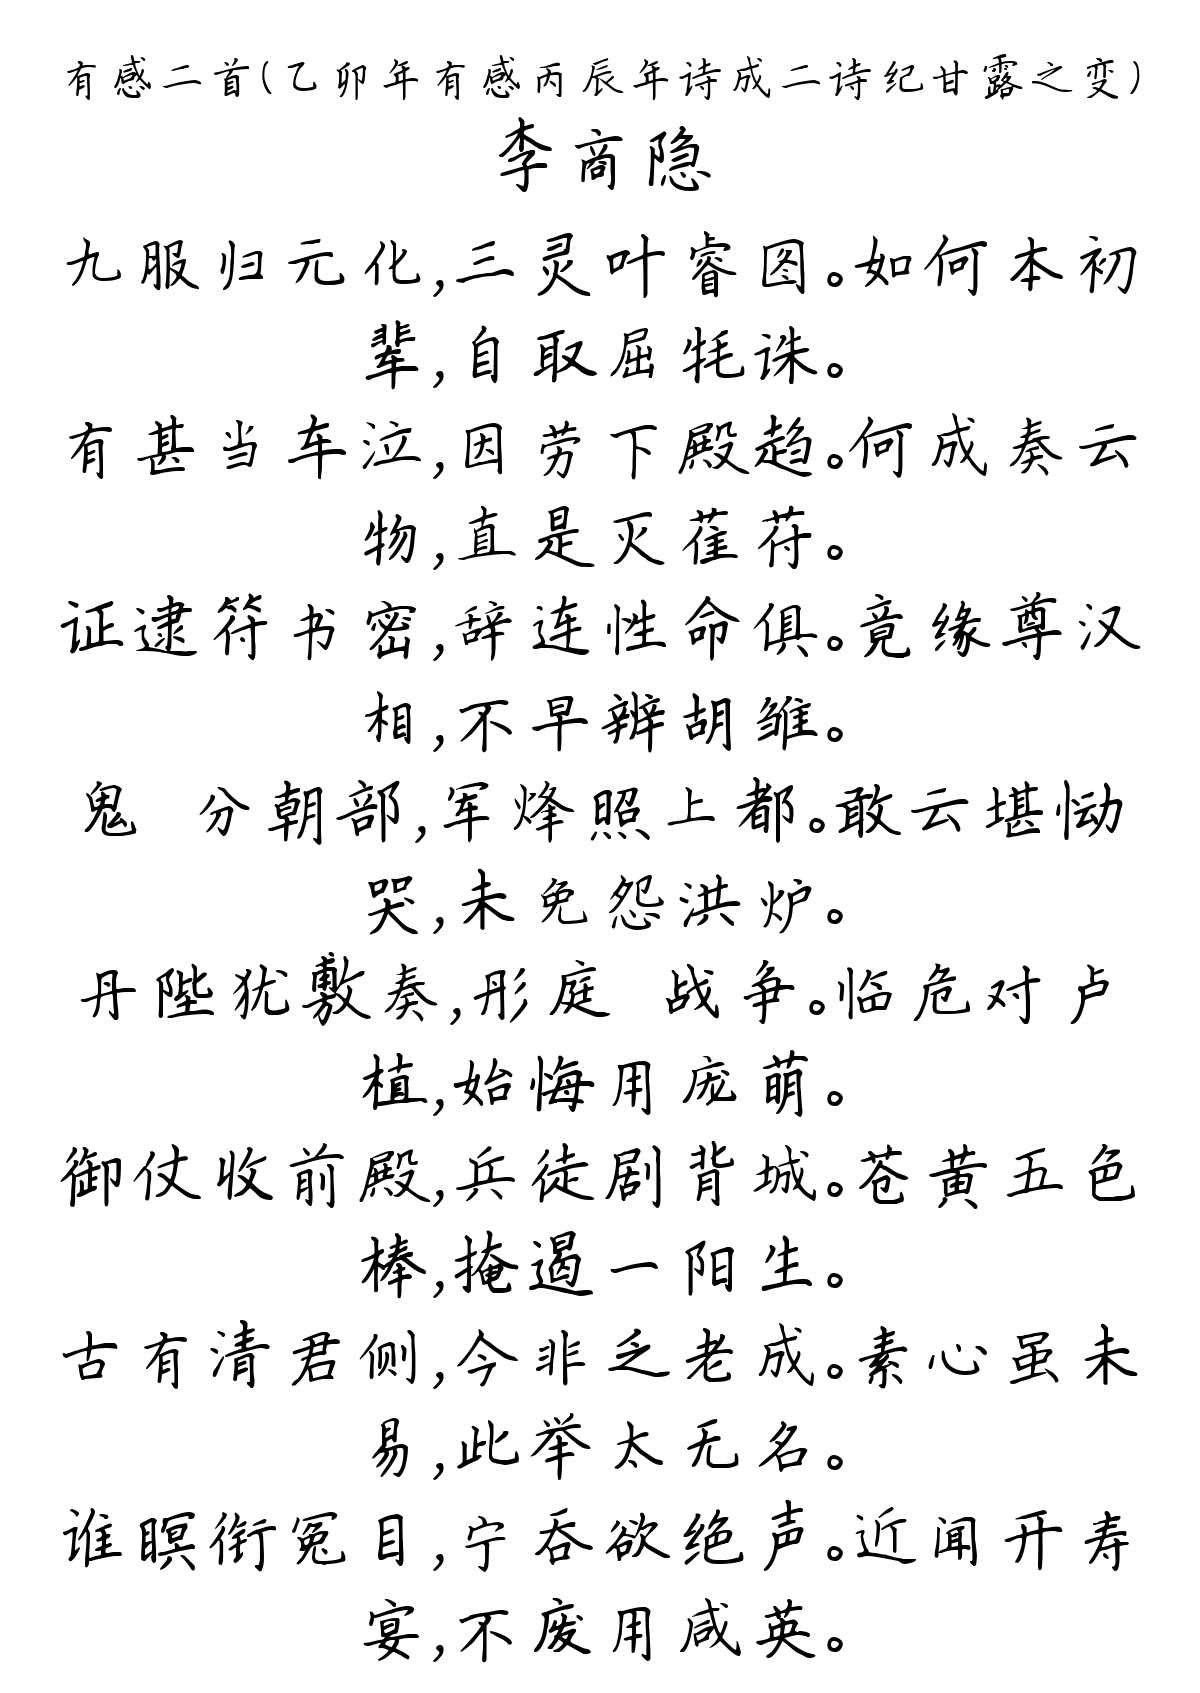 有感二首(乙卯年有感丙辰年诗成二诗纪甘露之变)
李商隐
九服归元化,三灵叶睿图。如何本初
辈,自取屈牦诛。
有甚当车泣,因劳下殿趋。何成奏云
物,直是灭萑苻。
证逮符书密,辞连性命俱。竟缘尊汉
相,不早辨胡雏。
鬼 分朝部,军烽照上都。敢云堪恸
哭,未免怨洪炉。
丹陛犹敷奏,彤庭 战争。临危对卢
植,始悔用庞萌。
御仗收前殿,兵徒剧背城。苍黄五色
棒,掩遏一阳生。
古有清君侧,今非乏老成。素心虽未
易,此举太无名。
谁瞑衔冤目,宁吞欲绝声。近闻开寿
宴,不废用咸英。